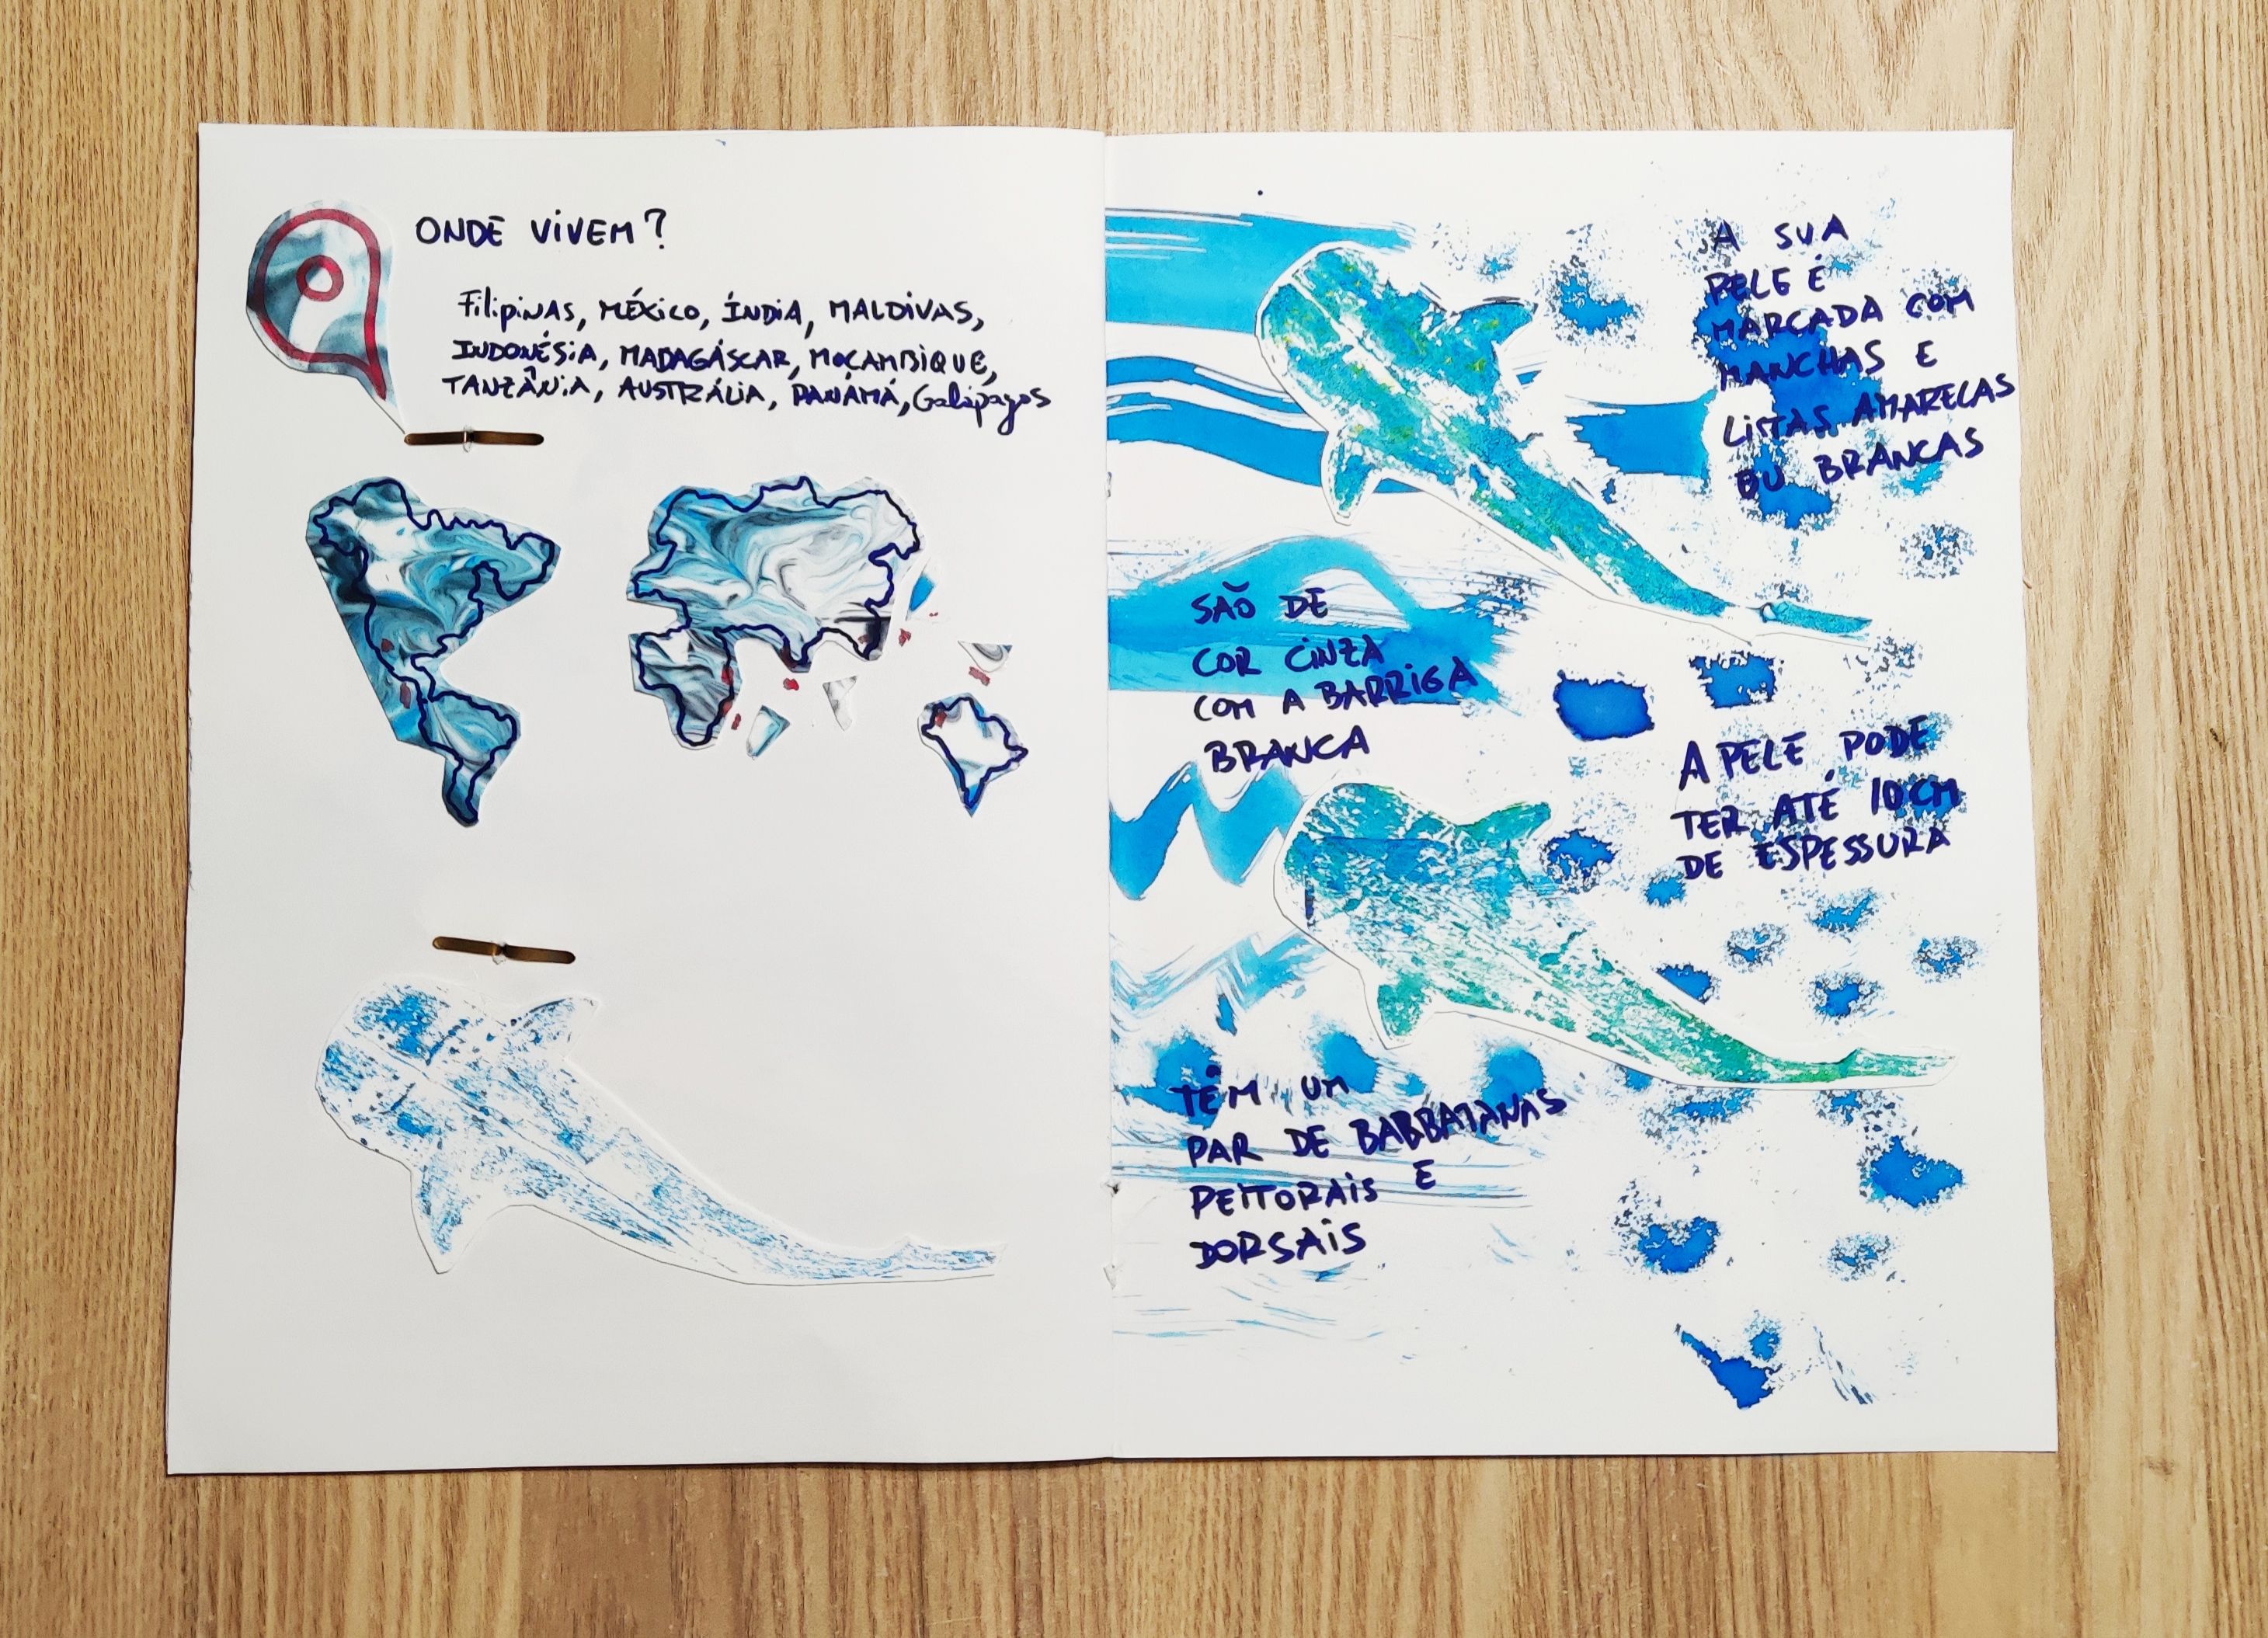 ONDE VIVEM?
Filipinas, MÉXICO, ÍNDIA, MALDIVAS,
INDONÉSIA, MADAGÁSCAR, MOÇAMBIQUE,
TANZÂNIA, AUSTRÁLIA, PANAMÁ, Galápagos
A SUA
PELE É
MARCADA COM
MANCHAS E
LISTAS AMARELAS
OU BRANCAS
SAÕ DE
COR CINZA
COM A BARRIGA
BRANCA
A PELE PODE
TER ATÉ 10CM
DE ESPESSURA
TÊM UM
PAR DE BABBATANAS
PEITORAIS E
DORSAIS